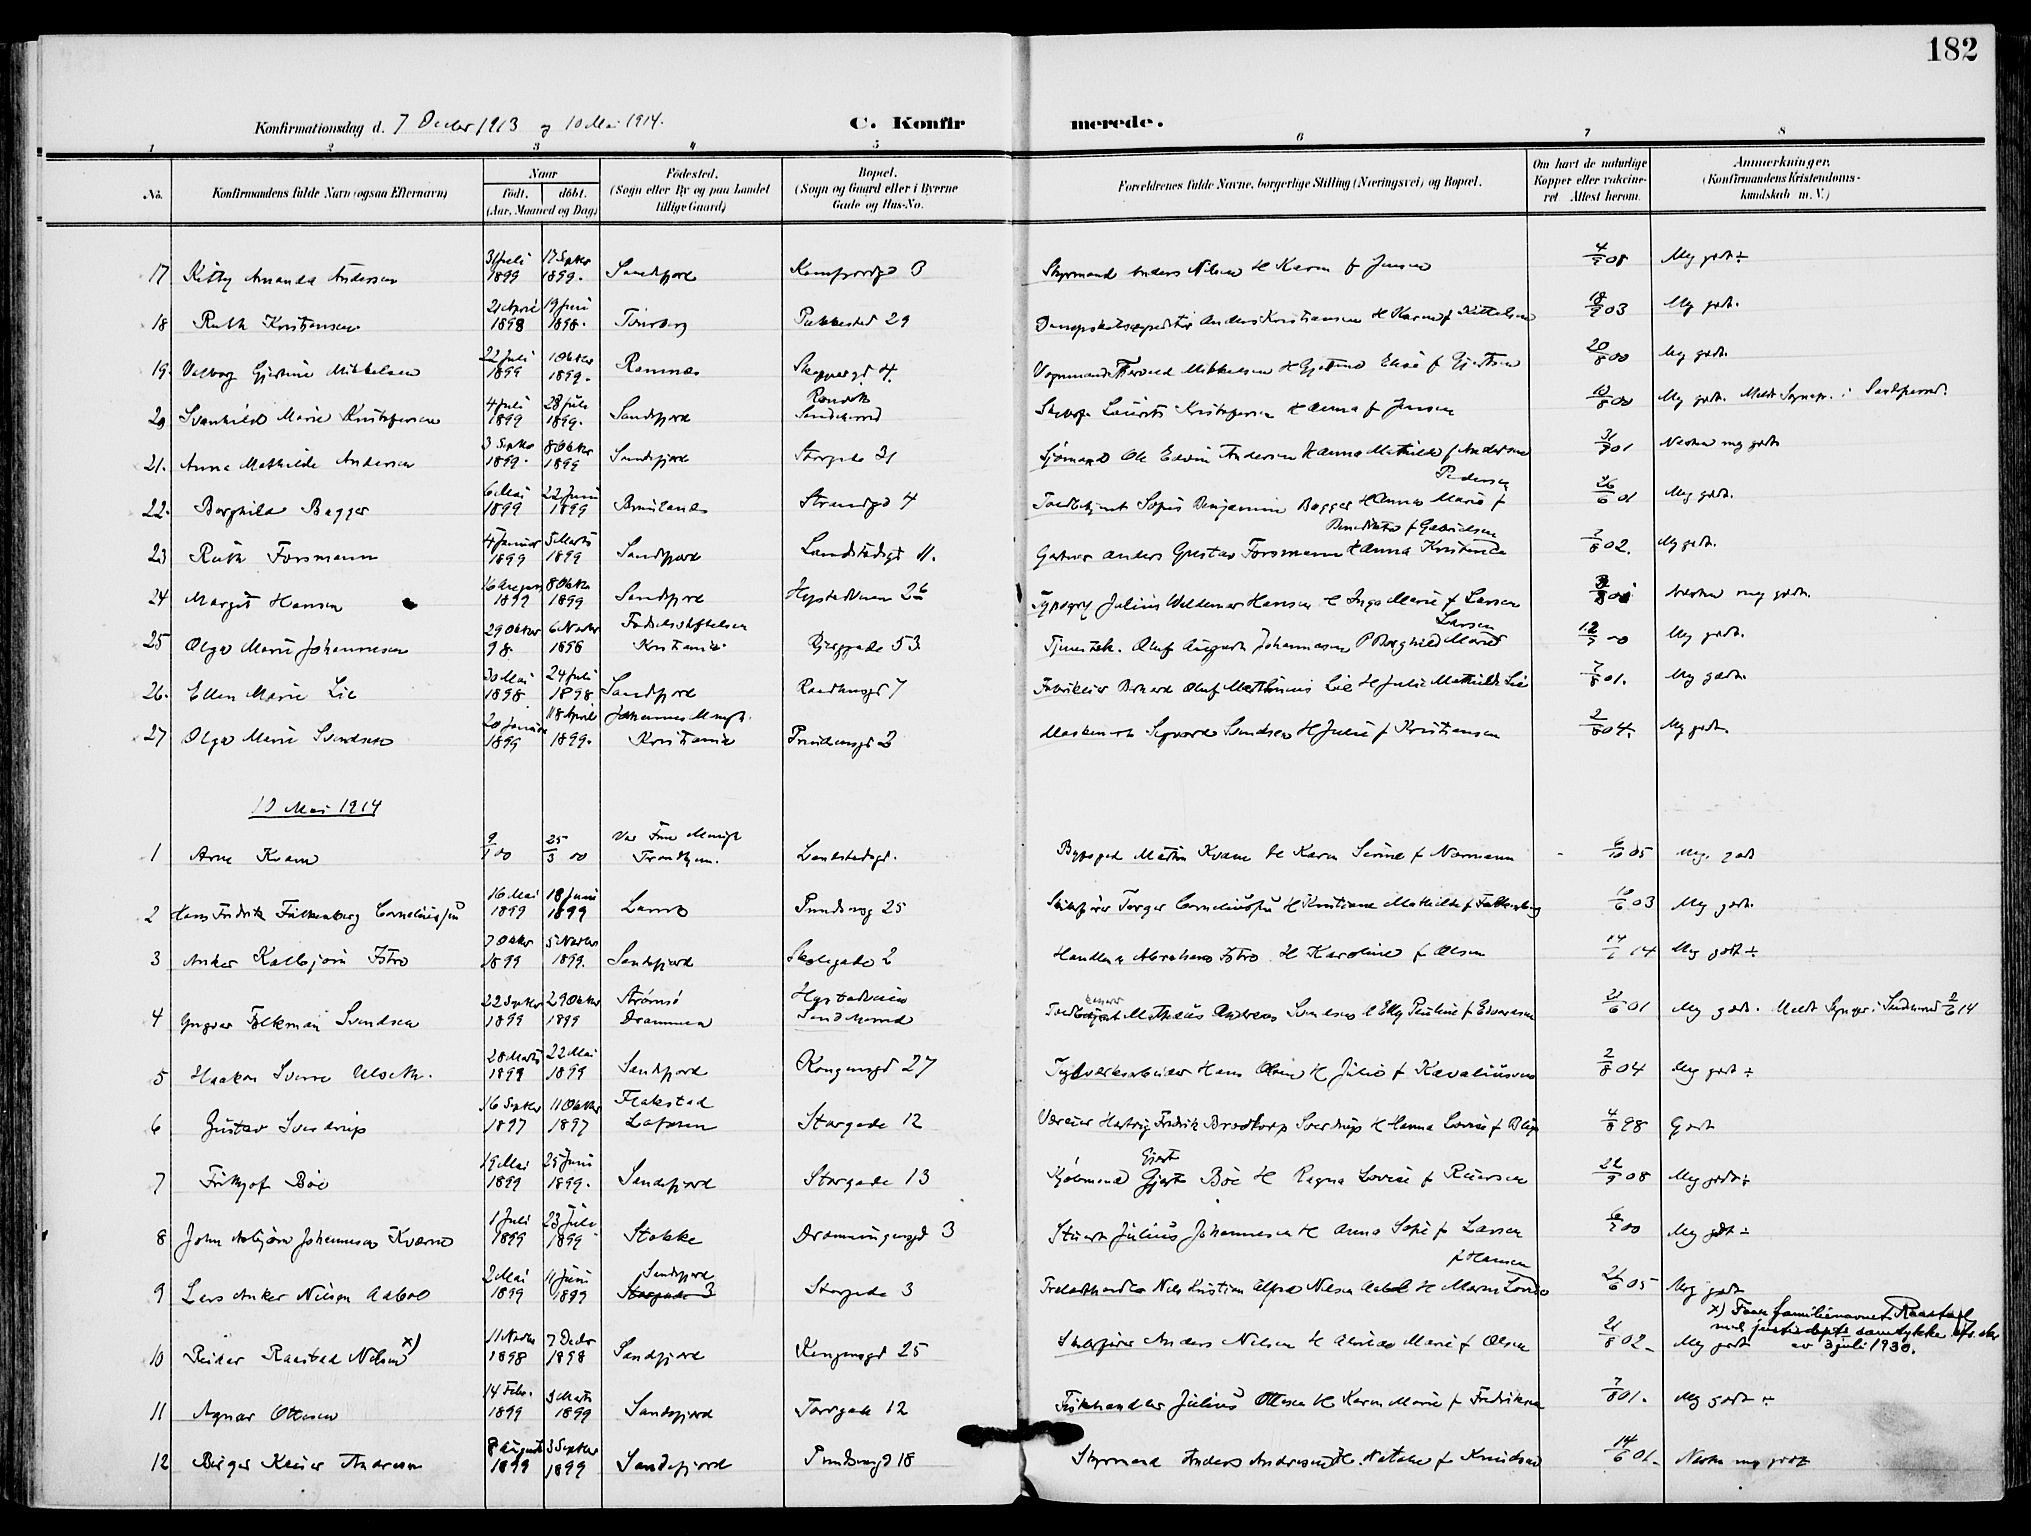 182
Konfirmationsdag d. 7 Decbr 1913 og 10 Mai 1914. C. Konfirmerede.
1 2 3 4 5 6 7 8
No. Konfirmandens fulde Navn (ogsaa Efternavn) Naar født, døbt. (Aar, Maaned og Dag) Fødested. (Sogn eller By og paa Landet tillige Gaard) Bopæl. (Sogn og Gaard eller i Byerne Gade og Hus-No. Forældrenes fulde Navne, borgerlige Stilling (Næringsvei) og Bopæl. Om havt de naturlige Kopper eller vakcineret Attest herom. Anmærkninger. (Konfirmandens Kristendomskundskab m. V.)
17 Kitty Amanda Andersen 31 Juli 1899 17 Septbr 1899. Sandefjord 3 Styrmand Anders Nilsen H Karen f Jensen 08 Meg godt ÷
18 Ruth Kristensen 21 April 1898 19 Juni 1898. Tønsberg Pukkestad 29 Anders Kristiansen H Karen f Kittelsen 03 Meg godt.
19. Valborg Gjertine Mikkelsen 22 Juli 1899 1 Oktbr 1899. Ramnes Skippergd 4. Vognmand Thorvald Mikkelsen H Gjertine Elise f Gjertsen 20/8 00 Meg godt.
20 Svanhild Marie Kristofersen 4 Juli 1899 28 Juli 1899. Sandefjord Sandeherred Laurits Kristofersen H Anna f Jensen 10/8 00 Meg godt. Meldt Sognepr. i Sandeherred.
21. Anna Mathilde Andersen 3 Septbr 1899. 8 Oktbr 1899 Sandefjord Storgade 31 Sjømand Ole Edvin Andersen H Anna Mathilde f Andersen 01 Næsten meg godt
22. Borghild Bagger 6 Mai 1899 22 Juni 1899 Strandgd 4 Toldbetjent Benjamin Bagger H Anna Marie f Pedersen 26/6 01 Meg godt.
23 Ruth Forsmann 4 Januar 1899 5 Marts 1899 Sandefjord Landstadsgt 11. Gartner Anders Gustav Forsmann H Anna Kristine Benedikte f Gabrielsen 7/8 02. Meg godt.
24 Margit Hansen 16 August 1899 8 Oktbr 1899 Sandefjord Hystadveien 26 Typogr Julius Waldemar Hansen H Inga Marie f Larsen Næsten meg godt.
25 Olga Marie Johannesen 29 Oktbr 98. 6 Novbr 1898 Fødselsstiftelsen Kristiania Bjerggade 53 Oluf August Johannesen P Borghild Marie Larsen 00 Meg godt.
26. Ellen Marie Lie 30 Mai 1898 24 Juli 1898 Sandefjord Raadhusgd 7 Oluf Mathinius Lie H Julie Mathilde Lie 7/8 01. Meg godt.
27 Olga Marie Svendsen 20 Januar 1899 18 April 1899. Johannes Menigh. Kristiania Prindsensgd 3 Maskinist Sigvard Svendsen H Julie f Kristiansen 2/8 04. Meg godt.
10 Mai 1914
1 Arne Kvam 9/1 00 25/3 00 Vor Frue Menigh Trondhjem. Landstadsgd. Martin Kvam H Karen f Normann 6/10 05 Meg. godt
2 Hans Fredrik Falkenberg Corneliussen 16 Mai 1899 18 Juni 1899 Larvik Prindsensg 25 Skibsfører Torger Corneliussen H Kristiane Mathilde f Falkenberg 03 Meg godt.
3 Anker Kallbjørn Istre 7 Oktbr 1899 5 Novbr 1899. Sandefjord Skolegade 2 Handlende Abraham Istre H Karoline f Olsen 14 Meg godt ÷
4 Yngvar Folkmar Svendsen 22 Septbr 1899 29 Oktbr 1899 Strømsø Drammen Hystadveien Sandeherred Mathæus Andreas Svendsen H Elly Pauline f Edvardsen 01 Meg godt. Meldt Sognepr. i Sandeherred 2/6 14
5 Haakon Sverre Ulseth. 28 Marts 1899 22 Mai 1899 Sandefjord Kongensgd 27 Hans H Julie f 2/8 04 Meg godt ÷
6 Gustav Sverdrup 16 Septbr 1897 11 Oktbr 1897 Flakstad Lofoten Storgade 12 Hartvig Fredrik Brodtkorp Sverdrup H Hanna Lovise f 4/8 98 Godt
7 Fritjof Bøe 19 Mai 1899 25 Juni 1899. Sandefjord Storgade 13 Kjøbmand Gjert Gjert Bøe H Ragna Lovise f 22/9 08 Meg godt ÷
8 John Asbjørn Johannesen Kværne 1 Juli 1899 23 Juli 1899 Stokke Dronningensgd 3 Stuert Julius Johannesen H Anna Sofie f Larsen 00 Meg godt ÷
9 Lars Anker Nilsen Aabol 2 Mai 1899 11 Juni 1899 Sandefjord Storgade 3 Storgade 3 Nils Kristian Alfred Nilsen Aabol H Maren f Hansen 05 Meg godt
10 Reidar Raastad Nilsen x) 11 Novbr 1898 7 Decbr 1898 Sandefjord Kongensgd 25 Skibsfører Anders Nilsen H Marie f Olsen 21/8 02 Meg godt x) Faar familienavnet Raastad med justisdepts samtykke av 3 juli 1930.
11 Agnar Ottesen 14 Febr. 1899 3 Marts 1899 Sandefjord Torvgade 12 Fiskehandler Julius Ottesen H Karen Marie f Fredriksen 7/8 01. Meg godt ÷
12 Birger Andresen 8 August 1899 3 Septbr 1899 Sandefjord Prindsensgd 18 Styrmand Anders Andresen H. Natalie f Knudsen 14/6 01. Næsten meg godt